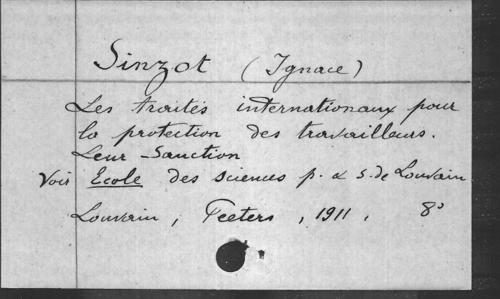 Sinzot (Ignace)
Les traités internationaux pour
la protection des travailleurs.
Leur Sanction
Voir Ecole des sciences p. & s. de Louvain
Louvain, Peeters, 1911, 8º